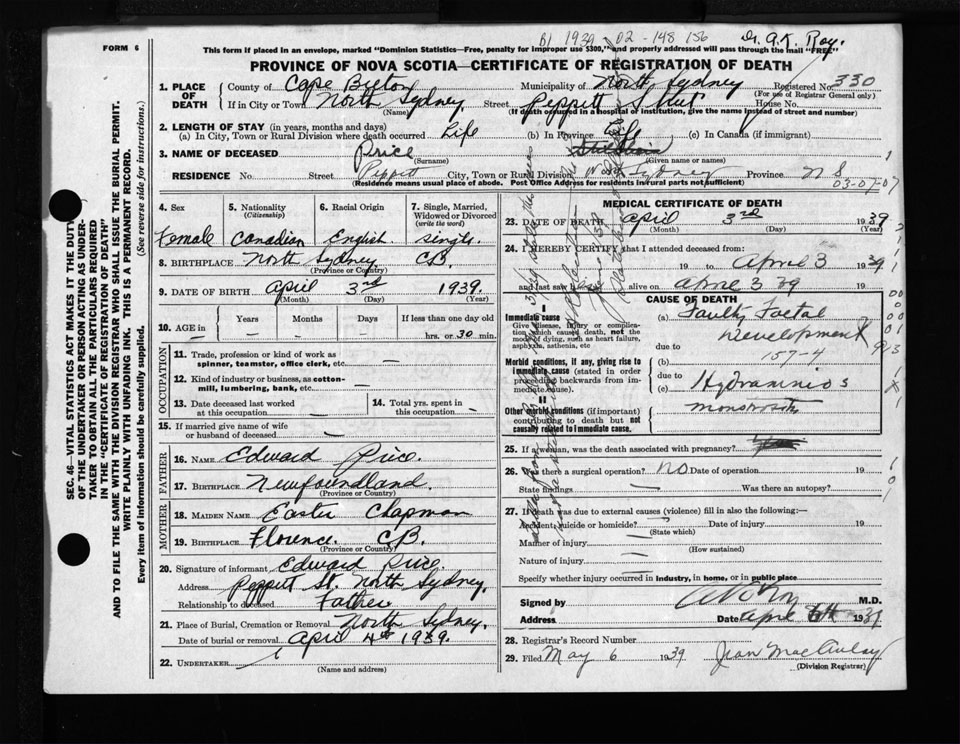 B1 1939 - 02 - 148 156 Dr. A.K. Roy.
FORM 6
This form if placed in an envelope, marked "Dominion Statistics—Free, penalty for improper use $300," and properly addressed will pass through the mail "FREE"
PROVINCE OF NOVA SCOTIA—CERTIFICATE OF REGISTRATION OF DEATH
1. PLACE OF DEATH County of Cape Breton Municipality of North Sydney Registered No. 330
(For use of Registrar General only)
If in City or Town North Sydney Street Peppitt Street House No.
(Name) (If death occurred in a hospital or institution, give the name instead of street and number)
2. LENGTH OF STAY (in years, months and days)
(a) In City, Town or Rural Division where death occurred Life (b) In Province Life (c) In Canada (if immigrant)
3. NAME OF DECEASED Price
(Surname) (Given name or names)
RESIDENCE No Street Peppitt City, Town or Rural Division North Sydney Province N S
(Residence means usual place of abode. Post Office Address for residents in rural parts not sufficient)
03-07-07
SEC. 46—VITAL STATISTICS ACT MAKES IT THE DUTY
OF THE UNDERTAKER OR PERSON ACTING AS UNDER-
TAKER TO OBTAIN ALL THE PARTICULARS REQUIRED
IN THE "CERTIFICATE OF REGISTRATION OF DEATH"
AND TO FILE THE SAME WITH THE DIVISION REGISTRAR WHO SHALL ISSUE THE BURIAL PERMIT.
WRITE PLAINLY WITH UNFADING INK. THIS IS A PERMANENT RECORD.
Every item of information should be carefully supplied. (See reverse side for instructions.)
4. Sex 5. Nationality 6. Racial Origin 7. Single, Married,
(Citizenship) Widowed or Divorced
(write the word)
Female Canadian English single.
8. BIRTHPLACE North Sydney CB.
(Province or Country)
9. DATE OF BIRTH April 3rd 1939.
(Month) (Day) (Year)
10. AGE in Years Months Days If less than one day
— — — hrs. or 30 min.
OCCUPATION
11. Trade, profession or kind of work as
spinner, teamster, office clerk, etc. —
12. Kind of industry or business, as cotton-
mill, lumbering, bank, etc. —
13. Date deceased last worked
at this occupation —
14. Total yrs. spent in
this occupation —
15. If married give name of wife
or husband of deceased —
FATHER
16. NAME Edward Price.
17. BIRTHPLACE Newfoundland.
(Province or Country)
MOTHER
18. MAIDEN NAME Easter Chapman
19. BIRTHPLACE Florence. CB.
(Province or Country)
20. Signature of informant Edward Price
Address Peppitt St. North Sydney.
Relationship to deceased Father
21. Place of Burial, Cremation or Removal North Sydney.
Date of burial or removal April 4th 1939.
22. UNDERTAKER
(Name and address)
MEDICAL CERTIFICATE OF DEATH
23. DATE OF DEATH April 3rd 1939
(Month) (Day) (Year)
24. I HEREBY CERTIFY that I attended deceased from:
19 to April 3 1939
and last saw h alive on April 3 39
CAUSE OF DEATH
Immediate cause
Give disease, injury or complica-
tion which caused death, not the
mode of dying, such as heart failure,
asphyxia, asthenia, etc.
(a) Faulty Foetal
Development
due to
157-4
Morbid conditions, if any, giving rise to
immediate cause (stated in order
proceeding backwards from im-
mediate cause).
(b)
due to
(c) Hydramnios
II
Other morbid conditions (if important)
contributing to death but not
causally related to immediate cause.
monstrosity
25. If a woman, was the death associated with pregnancy?
26. Was there a surgical operation? no. Date of operation 19
State findings — Was there an autopsy?
27. If death was due to external causes (violence) fill in also the following:—
Accident, suicide or homicide? — Date of injury 19
(State which)
Manner of injury —
(How sustained)
Nature of injury —
Specify whether injury occurred in industry, in home, or in public place
Signed by A K Roy M.D.
Address Date April 6th 1939
28. Registrar's Record Number
29. Filed May 6 1939 Jean MacAulay
(Division Registrar)